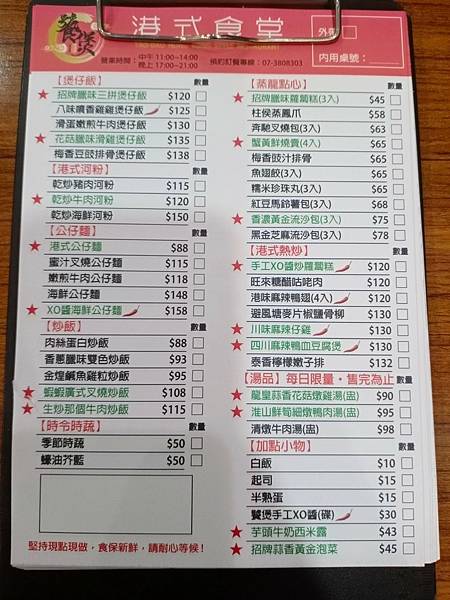 饕煲
港式食堂
外帶
營業時間：中午11:00~14:00
晚上17:00~21:00
預約訂餐專線：07-3808303
內用桌號：
【煲仔飯】 數量
★ 招牌臘味三拼煲仔飯 $120
八味噴香雞雞煲仔飯 $125
滑蛋嫩煎牛肉煲仔飯 $130
★ 花菇臘味滑雞煲仔飯 $135
梅香豆豉排骨煲仔飯 $138
【港式河粉】 數量
乾炒豬肉河粉 $115
★ 乾炒牛肉河粉 $120
乾炒海鮮河粉 $150
【公仔麵】 數量
★ 港式公仔麵 $88
蜜汁叉燒公仔麵 $115
嫩煎牛肉公仔麵 $118
海鮮公仔麵 $148
★ XO醬海鮮公仔麵 $158
【炒飯】 數量
肉絲蛋白炒飯 $88
香蔥臘味雙色炒飯 $93
金煌鹹魚雞粒炒飯 $95
★ 蝦蝦廣式叉燒炒飯 $108
★ 生炒那個牛肉炒飯 $115
【時令時蔬】 數量
季節時蔬 $50
蠔油芥藍 $50
堅持現點現做，食保新鮮，請耐心等候！
【蒸籠點心】 數量
★ 招牌臘味蘿蔔糕(3入) $45
柱侯蒸鳳爪 $58
奔馳叉燒包(3入) $63
★ 蟹黃鮮燒賣(4入) $65
梅香豉汁排骨 $65
魚翅餃(3入) $65
糯米珍珠丸(3入) $65
紅豆馬鈴薯包(3入) $68
★ 香濃黃金流沙包(3入) $75
黑金芝麻流沙包(3入) $78
【港式熱炒】 數量
★ 手工XO醬炒蘿蔔糕 $120
旺來糖醋咕咾肉 $120
港味麻辣鴨翅(4入) $120
避風塘麥片椒鹽骨柳 $130
★ 川味麻辣仔雞 $130
★ 四川麻辣鴨血豆腐煲 $130
泰香檸檬嫩子排 $132
【湯品】每日限量‧售完為止 數量
★ 龍皇蒜香花菇燉雞湯(盅) $90
★ 淮山鮮筍細燉鴨肉湯(盅) $95
清燉牛肉湯(盅) $98
【加點小物】 數量
白飯 $10
起司 $15
半熟蛋 $15
饕煲手工XO醬(碟) $30
★ 芋頭牛奶西米露 $43
★ 招牌蒜香黃金泡菜 $45